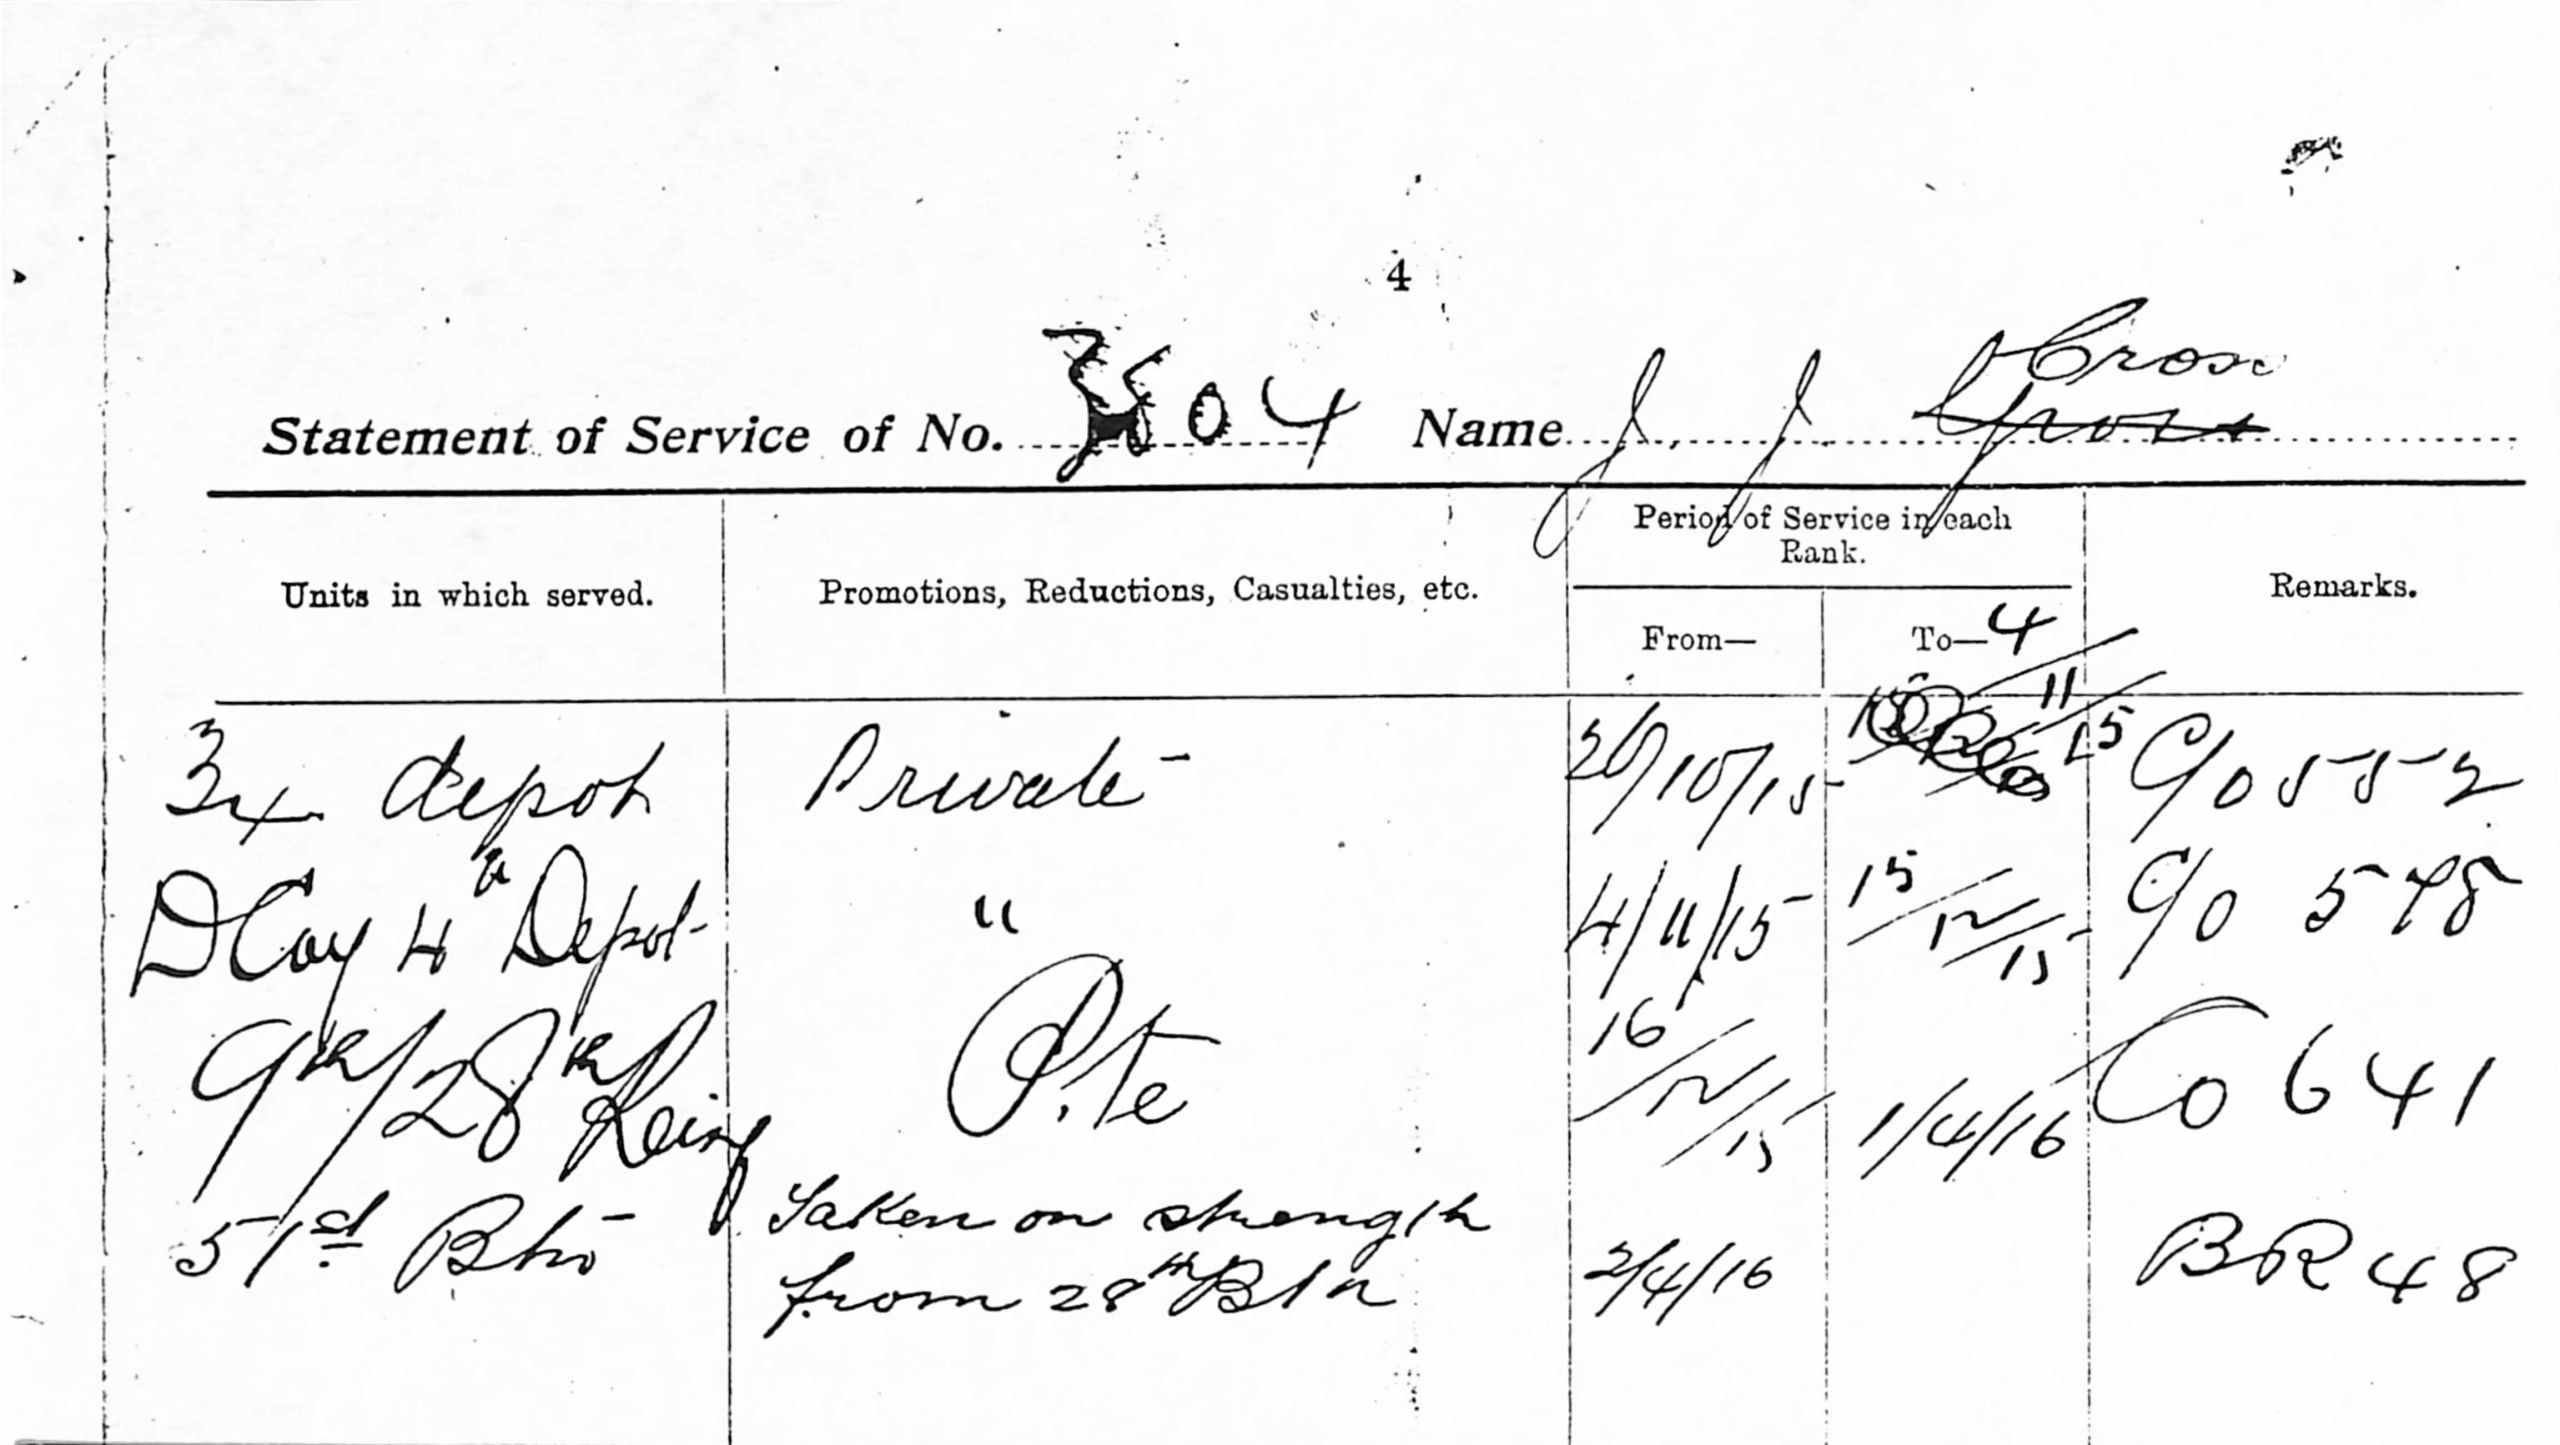 4
Cron
Statement of Service of No. 3804 Name J. J.
Units in which served. Promotions, Reductions, Casualties, etc. Period of Service in each Rank. From— To— Remarks.
depot Private 20/10/15 4/11/15 C/o 552
D Coy 4th Depot " 4/11/15 15/12/15 C/o 598
9th/28th Reinf Pte 16/12/15 1/4/16 Co 641
51st Btn Taken on strength
from 28th Btn 2/4/16 BR 48